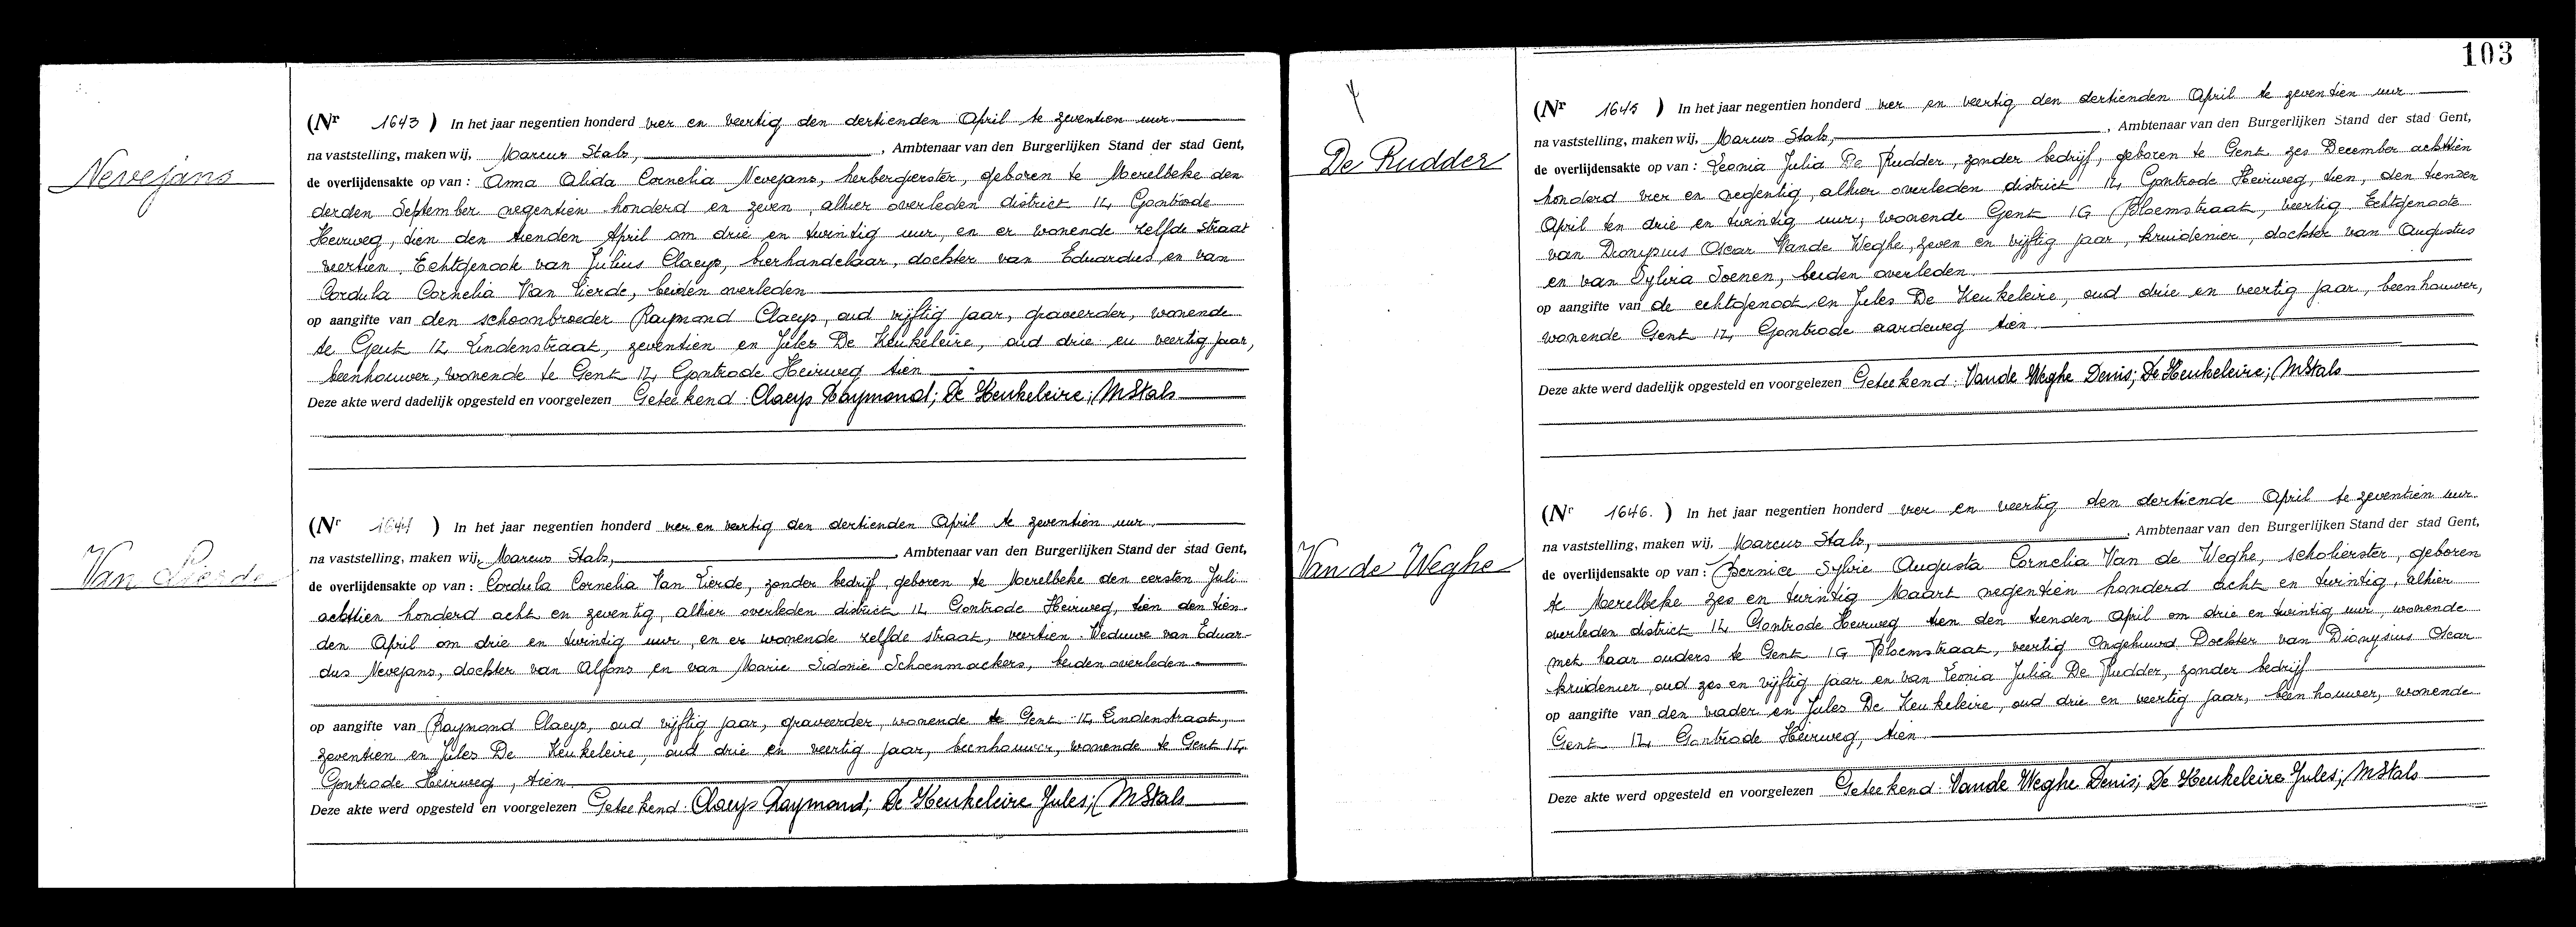 Nevejans
(Nr 1643 ) In het jaar negentien honderd vier en veertig den dertienden April te zeventien uur
na vaststelling, maken wij, Marcus Stals, , Ambtenaar van den Burgerlijken Stand der stad Gent,
de overlijdensakte op van : Anna Alida Cornelia Nevejans, herbergierster, geboren te Merelbeke den
derden September negentien honderd en zeven, alhier overleden district 12, Gontrode
Heirweg, tien den tienden April om drie en twintig uur, en er wonende zelfde straat
veertien. Echtgenoote van Julius Claeys, bierhandelaar, dochter van Eduardus en van
Cordula Cornelia Van Lierde, beiden overleden
op aangifte van den schoonbroeder Raymond Claeys, oud vijftig jaar, graveerder, wonende
te Gent 12, Lindenstraat, zeventien en Jules De Keukeleire, oud drie en veertig jaar,
beenhouwer, wonende te Gent 12, Gontrode Heirweg tien
Deze akte werd dadelijk opgesteld en voorgelezen Geteekend : Claeys Raymond; De Keukeleire; MStals
Van Lierde
(Nr 1644 ) In het jaar negentien honderd vier en veertig den dertienden April te zeventien uur
na vaststelling, maken wij, Marcus Stals, , Ambtenaar van den Burgerlijken Stand der stad Gent,
de overlijdensakte op van : Cordula Cornelia Van Lierde, zonder bedrijf, geboren te Merelbeke den eersten Juli
achttien honderd acht en zeventig, alhier overleden district 12 Gontrode Heirweg, tien den tien-
den April om drie en twintig uur, en er wonende zelfde straat, veertien. Weduwe van Eduar-
dus Nevejans, dochter van Alfons en van Marie Sidonie Schoenmackers, beiden overleden
op aangifte van Raymond Claeys, oud vijftig jaar, graveerder, wonende te Gent 12, Lindenstraat,
zeventien en Jules De Keukeleire, oud drie en veertig jaar, beenhouwer, wonende te Gent 12,
Gontrode Heirweg, tien
Deze akte werd opgesteld en voorgelezen Geteekend : Claeys Raymond; De Keukeleire Jules; MStals
103
De Rudder
(Nr 1645 ) In het jaar negentien honderd vier en veertig den dertienden April te zeventien uur
na vaststelling, maken wij, Marcus Stals, , Ambtenaar van den Burgerlijken Stand der stad Gent,
de overlijdensakte op van : Leonia Julia De Rudder, zonder bedrijf, geboren te Gent zes December achttien
honderd vier en negentig, alhier overleden district 12, Gontrode Heirweg, tien, den tienden
April ten drie en twintig uur, wonende Gent 1G Bloemstraat, veertig. Echtgenoote
van Dionysius Oscar Vande Weghe, zeven en vijftig jaar, kruidenier, dochter van Augustus
en van Sylvia Soenen, beiden overleden
op aangifte van de echtgenoot en Jules De Keukeleire, oud drie en veertig jaar, beenhouwer,
wonende Gent 12, Gontrode aardeweg tien
Deze akte werd dadelijk opgesteld en voorgelezen Geteekend : Vande Weghe Denis; De Keukeleire; MStals
Van de Weghe
(Nr 1646. ) In het jaar negentien honderd vier en veertig den dertiende April te zeventien uur
na vaststelling, maken wij, Marcus Stals, , Ambtenaar van den Burgerlijken Stand der stad Gent,
de overlijdensakte op van : Bernice Sylvie Augusta Cornelia Van de Weghe, scholierster, geboren
te Merelbeke zes en twintig Maart negentien honderd acht en twintig, alhier
overleden district 12 Gontrode Heirweg tien den tienden April om drie en twintig uur, wonende
met haar ouders te Gent 1G Bloemstraat, veertig Ongehuwd Dochter van Dionysius Oscar
kruidenier, oud zes en vijftig jaar en van Leonia Julia De Rudder, zonder bedrijf
op aangifte van den vader en Jules De Keukeleire, oud drie en veertig jaar, beenhouwer, wonende
Gent 12, Gontrode Heirweg, tien
Deze akte werd opgesteld en voorgelezen Geteekend : Vande Weghe Denis; De Keukeleire Jules; MStals